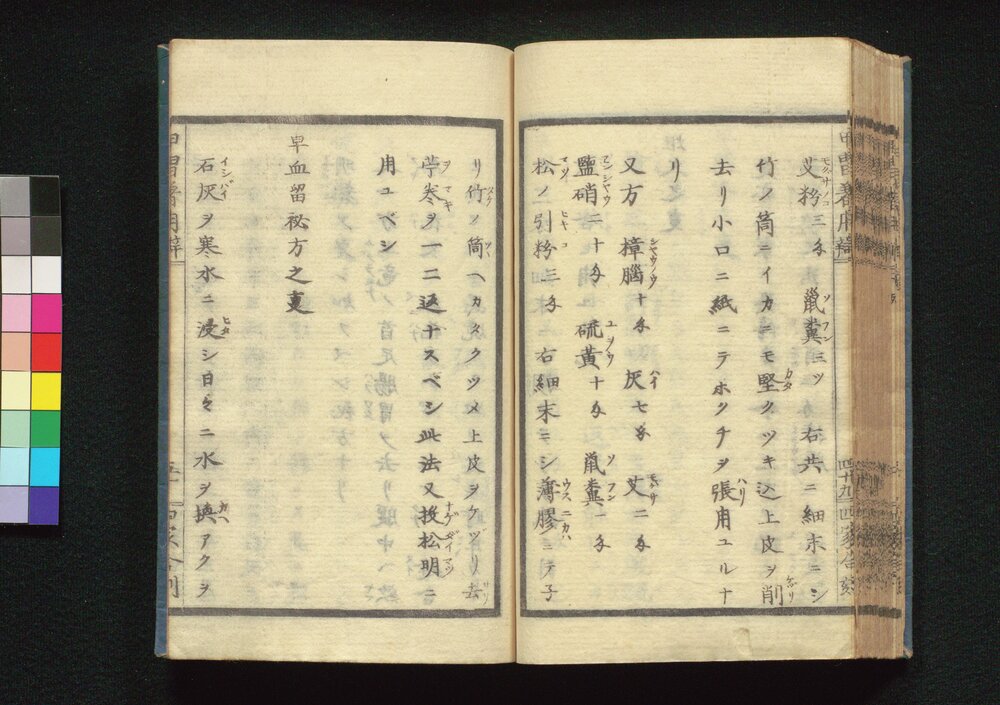 艾粉三匁 鼠糞三ツ 右共ニ細末ニシ
竹ノ筒ニイカニモ堅クツキ込上皮ヲ削
去リ小口ニ紙ニテホクチヲ張用ユルナ
リ
又方 樟腦十匁 灰七匁 艾二匁
鹽硝二十匁 硫黄十匁 鼠糞一匁
松ノ引粉三匁 右細末ニシ薄膠ニテ子
リ竹ノ筒ヘカタクツメ上皮ヲケヅリ去
苧巻ヲ一二返十スベシ此法又投松明ニ
用ユベシ
卑血留祕方之㕝
石灰ヲ寒水ニ浸シ日々ニ水ヲ換アクヲ
甲冑着用辨
四十九 四家合刻
五十 四家合刻